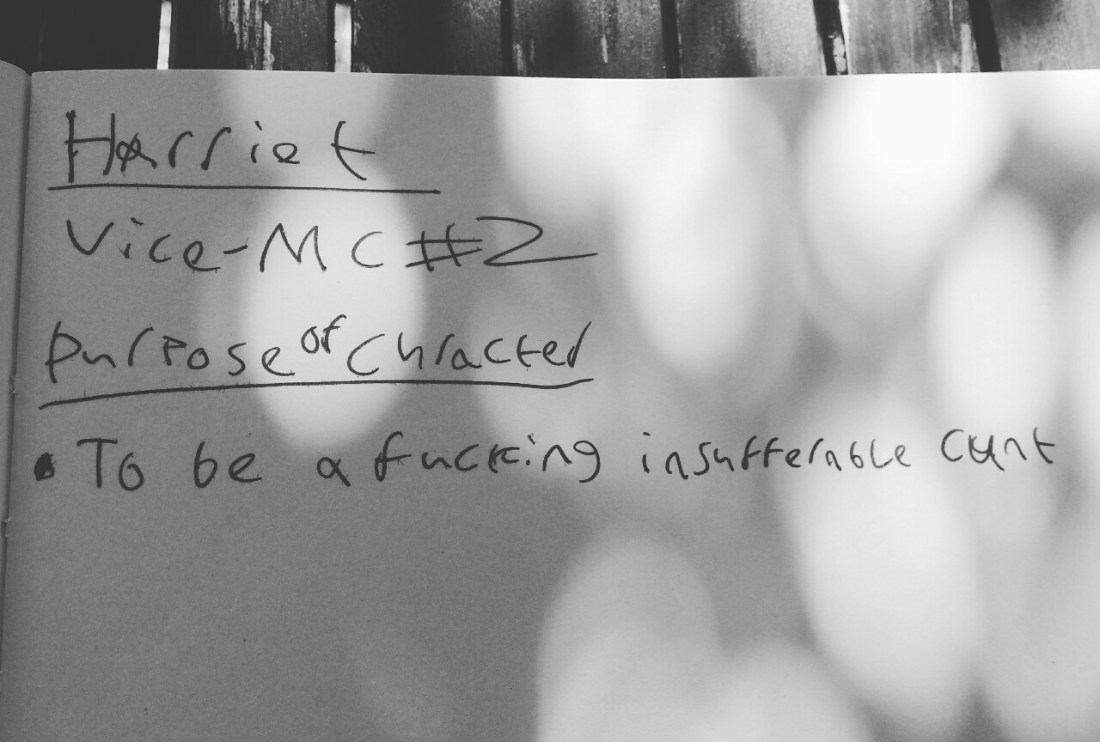 Harriet
Vice-MC #2
Purpose of Chracter
• To be a fucking insufferable cunt